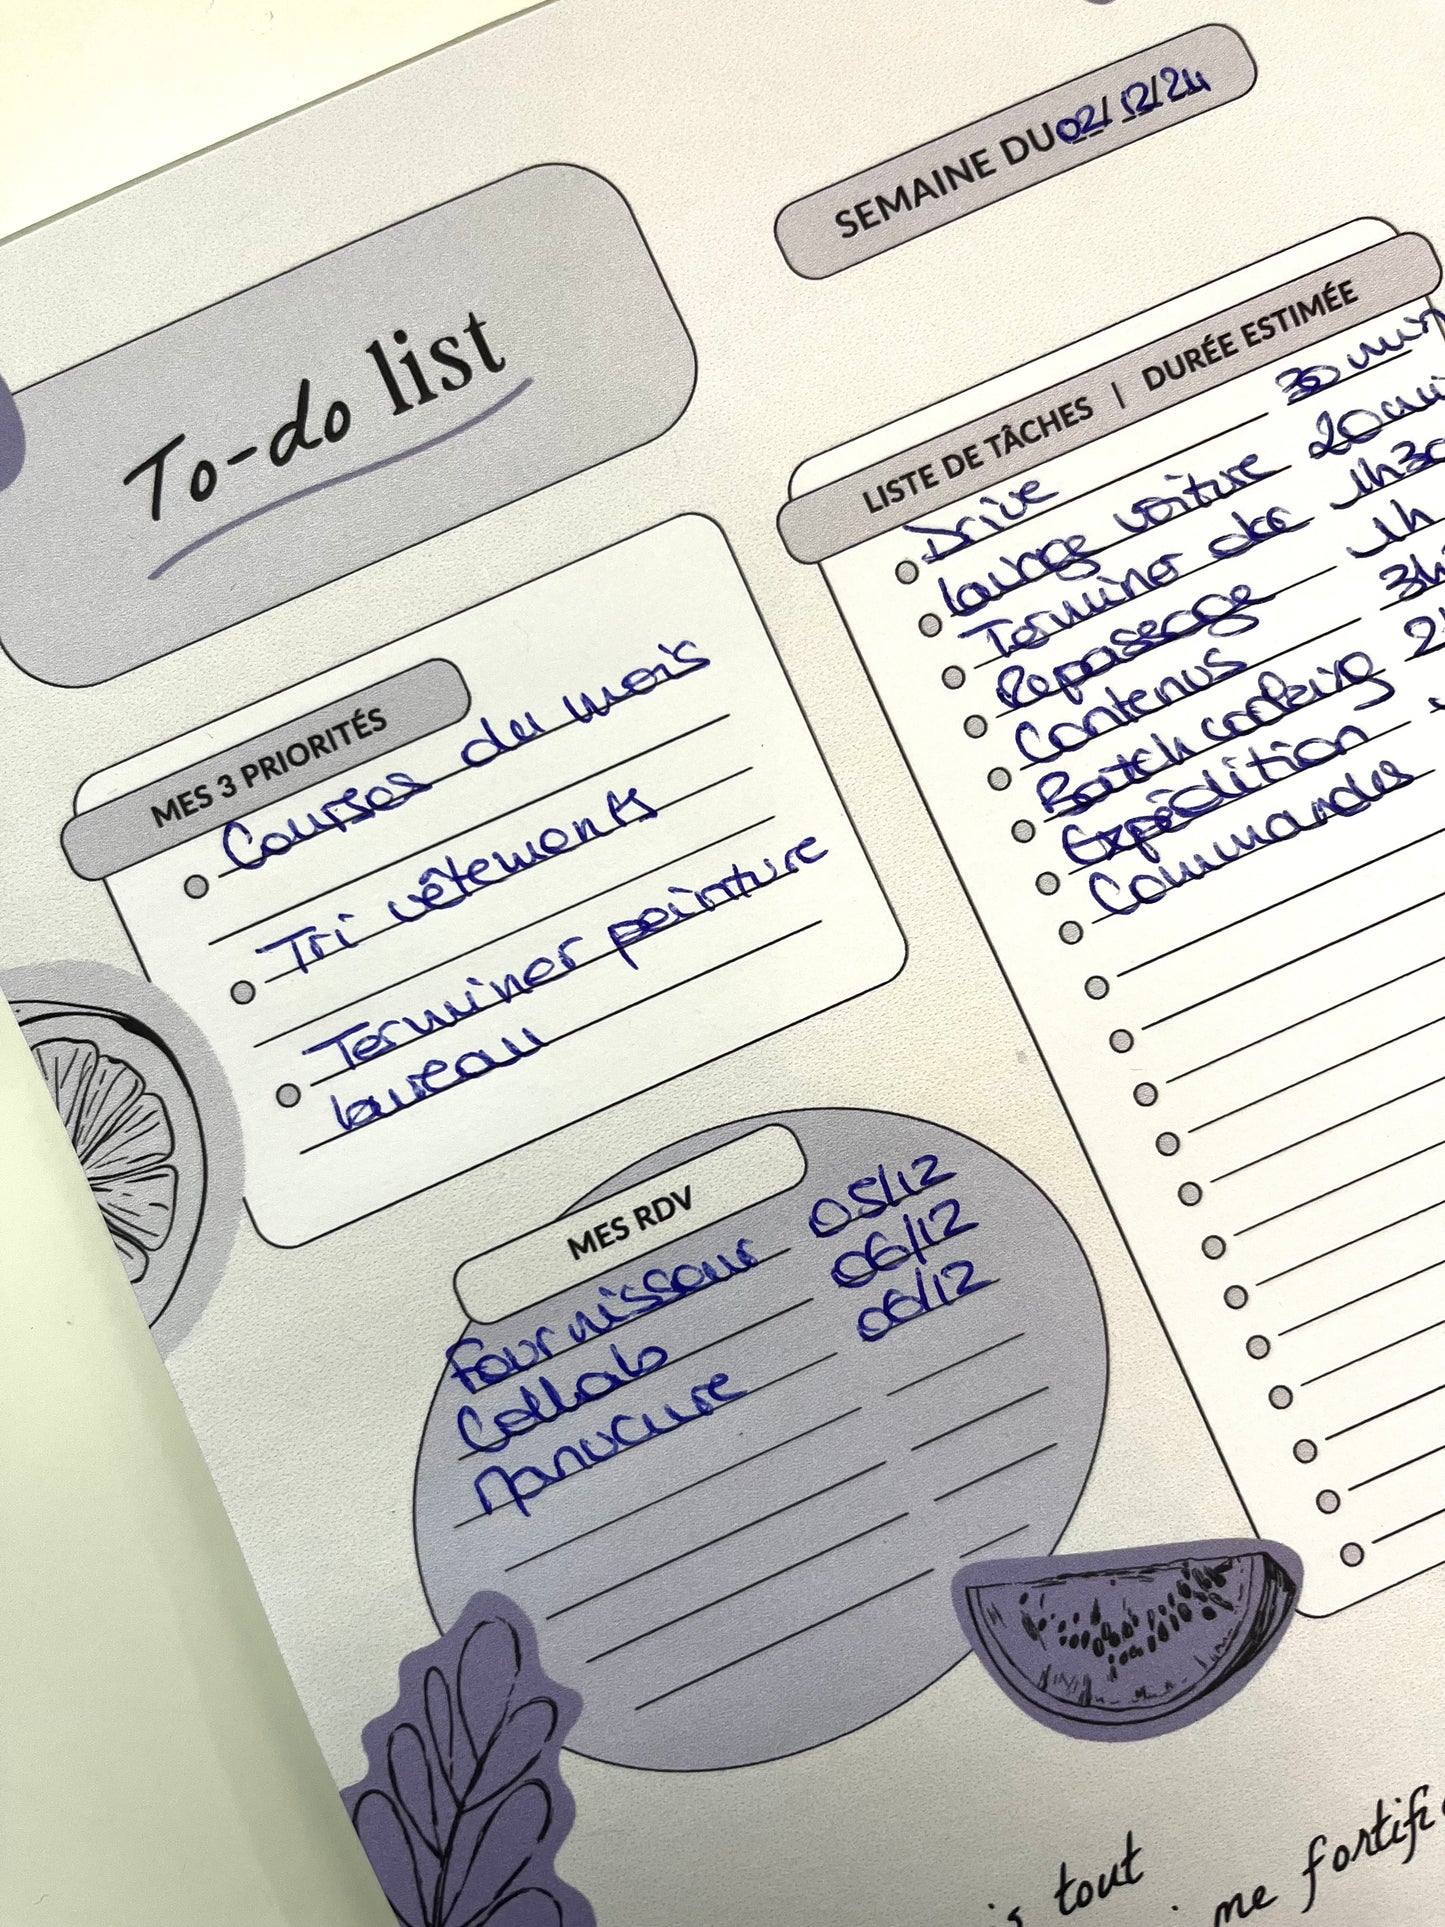 SEMAINE DU 02/12/24
To-do list
MES 3 PRIORITÉS
Courses du mois
Tri vêtements
Terminer peinture
bureau
MES RDV
Fournisseur 05/12
Collab 06/12
Manucure 06/12
LISTE DE TÂCHES | DURÉE ESTIMÉE
Drive 30 min
lavage voiture 20 min
Terminer 1h30
Repassage 1h
Contenus 3h
Batch cooking
Expédition
Commandes
tout
me